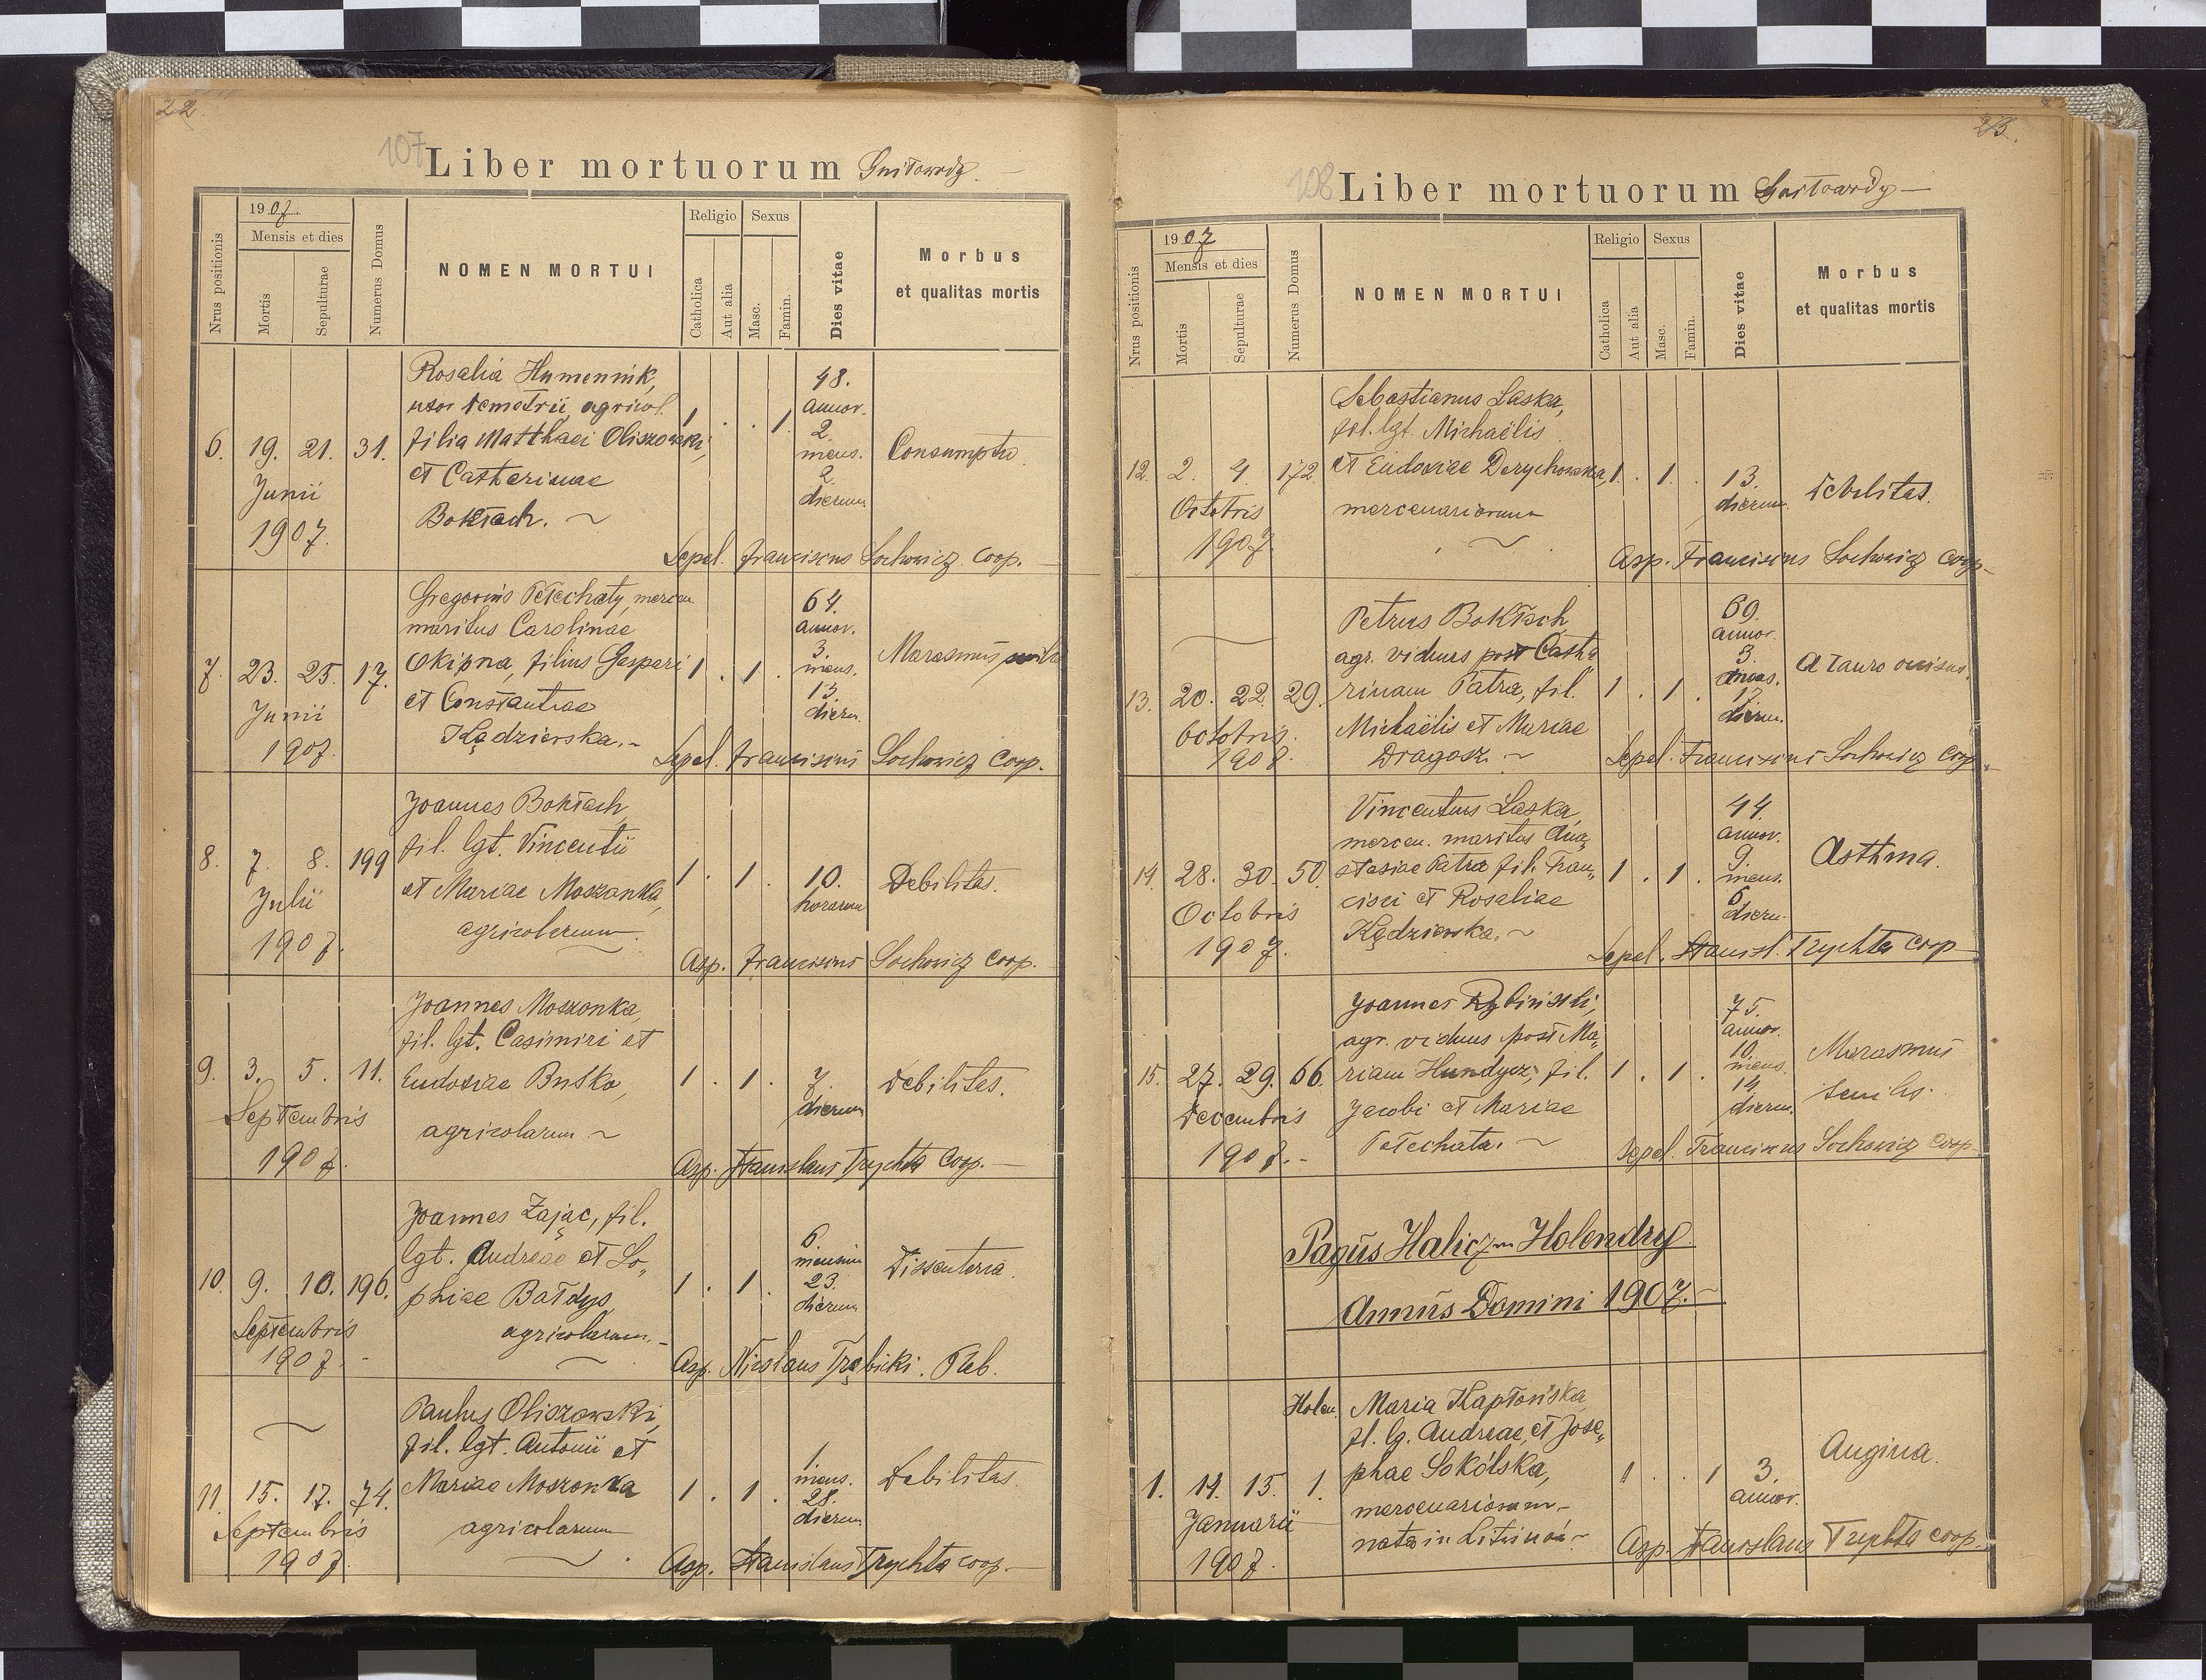 22.
107
Liber mortuorum Gniłowody.
1907.
Mensis et dies
Nrus positionis
Mortis
Sepulturae
Numerus Domus
NOMEN MORTUI
Religio
Catholica
Aut alia
Sexus
Masc.
Famin.
Dies vitae
Morbus
et qualitas mortis
Rosalia Humennik,
uxor Demetrii, agricol.
6. 19. 21. 31. filia Matthaei Oliszowski, 1 . . 1. 48. annor. 2. mens. 2. dierum Consumptio.
Junii et Catherinae
1907. Bokłach. ~
Sepel. Franciscus Sochowicz coop.
Gregorius Petechaty, mercen.
maritus Carolinae
7. 23. 25. 17. Okipna, filius Gaspari 1 . 1 . 64. annor. 3. mens. 13. dieru. Marasmus
Junii et Constantiae
1907. Kędzierska. ~
Sepel. Franciscus Sochowicz Coop.
Joannes Bokłach,
fil. lgt. Vincentii
8. 7. 8. 199 et Mariae Moszonka, 1 . 1 . 10. horarum Debilitas.
Julii agricolarum.
1907.
Asp. Franciscus Sochowicz coop.
Joannes Moszonka,
fil. lgt. Casimiri et
9. 3. 5. 11. Eudoxiae Buśko, 1 . 1 . 7. dierum Debilitas.
Septembris agricolarum ~
1907.
Asp. Stanislaus Trychta Coop.
Joannes Zając, fil.
lgt. Andreae et So„
10. 9. 10. 196. phiae Bałdys, 1 . 1 . 6. mensium 23. dierum Dissenteria.
Septembris agricolarum.
1907.
Asp. Nicolaus Trębicki. Pleb.
Paulus Oliszowski,
fil. lgt. Antonii et
11. 15. 17. 74. Mariae Moszonka 1 . 1 . 1. mens. 28. dierum Debilitas.
Septembris agricolarum
1907.
Asp. Stanislaus Trychta coop.
23.
108
Liber mortuorum Gniłowody
1907
Mensis et dies
Nrus positionis
Mortis
Sepulturae
Numerus Domus
NOMEN MORTUI
Religio
Catholica
Aut alia
Sexus
Masc.
Famin.
Dies vitae
Morbus
et qualitas mortis
Sebastianus Laska,
fil. lgt. Michaëlis
12. 2. 4. 172. et Eudoxiae Derychowska, 1 . 1 . 13. dierum. Debilitas.
Octobris mercenariorum
1907.
Asp. Franciscus Sochowicz Coop.
Petrus Bokłach
agr. viduus post Catha
13. 20. 22. 29. rinam Patra, fil. 1 . 1 . 69. annor. 3. mens. 12. dieru. A tauro occisus.
Octobris. Michaëlis et Mariae
1907. Dragosz. ~
Sepel. Franciscus Sochowicz Coop.
Vincentius Laska,
mercen. maritus Ana„
14. 28. 30. 50. stasiae Patra fil. Fran„ 1 . 1 . 44. annor. 9. mens. 6. dieru. Asthma.
Octobris cisci et Rosaliae
1907. Kędzierska. ~
Sepel. Stanisl. Trychta Coop
Joannes Rybiński,
agr. viduus post Ma„
15. 27. 29. 66. riam Hundycz, fil. 1 . 1 . 75. annor. 10. mens. 14. dierum. Marasmus senilis.
Decembris Jacobi et Mariae
1907. Petechata. ~
Sepel. Franciscus Sochowicz Coop.
Pagus Halicz Holendry
Annus Domini 1907.
Holen. Maria Kapłońska,
fil. lg. Andreae, et Jose„
1. 14. 15. 1. phae Sokólska, 1 . . 1 3. annor. Angina.
Januarii mercenariorum.
1907. nata in
Asp. Stanislaus Trychta coop.